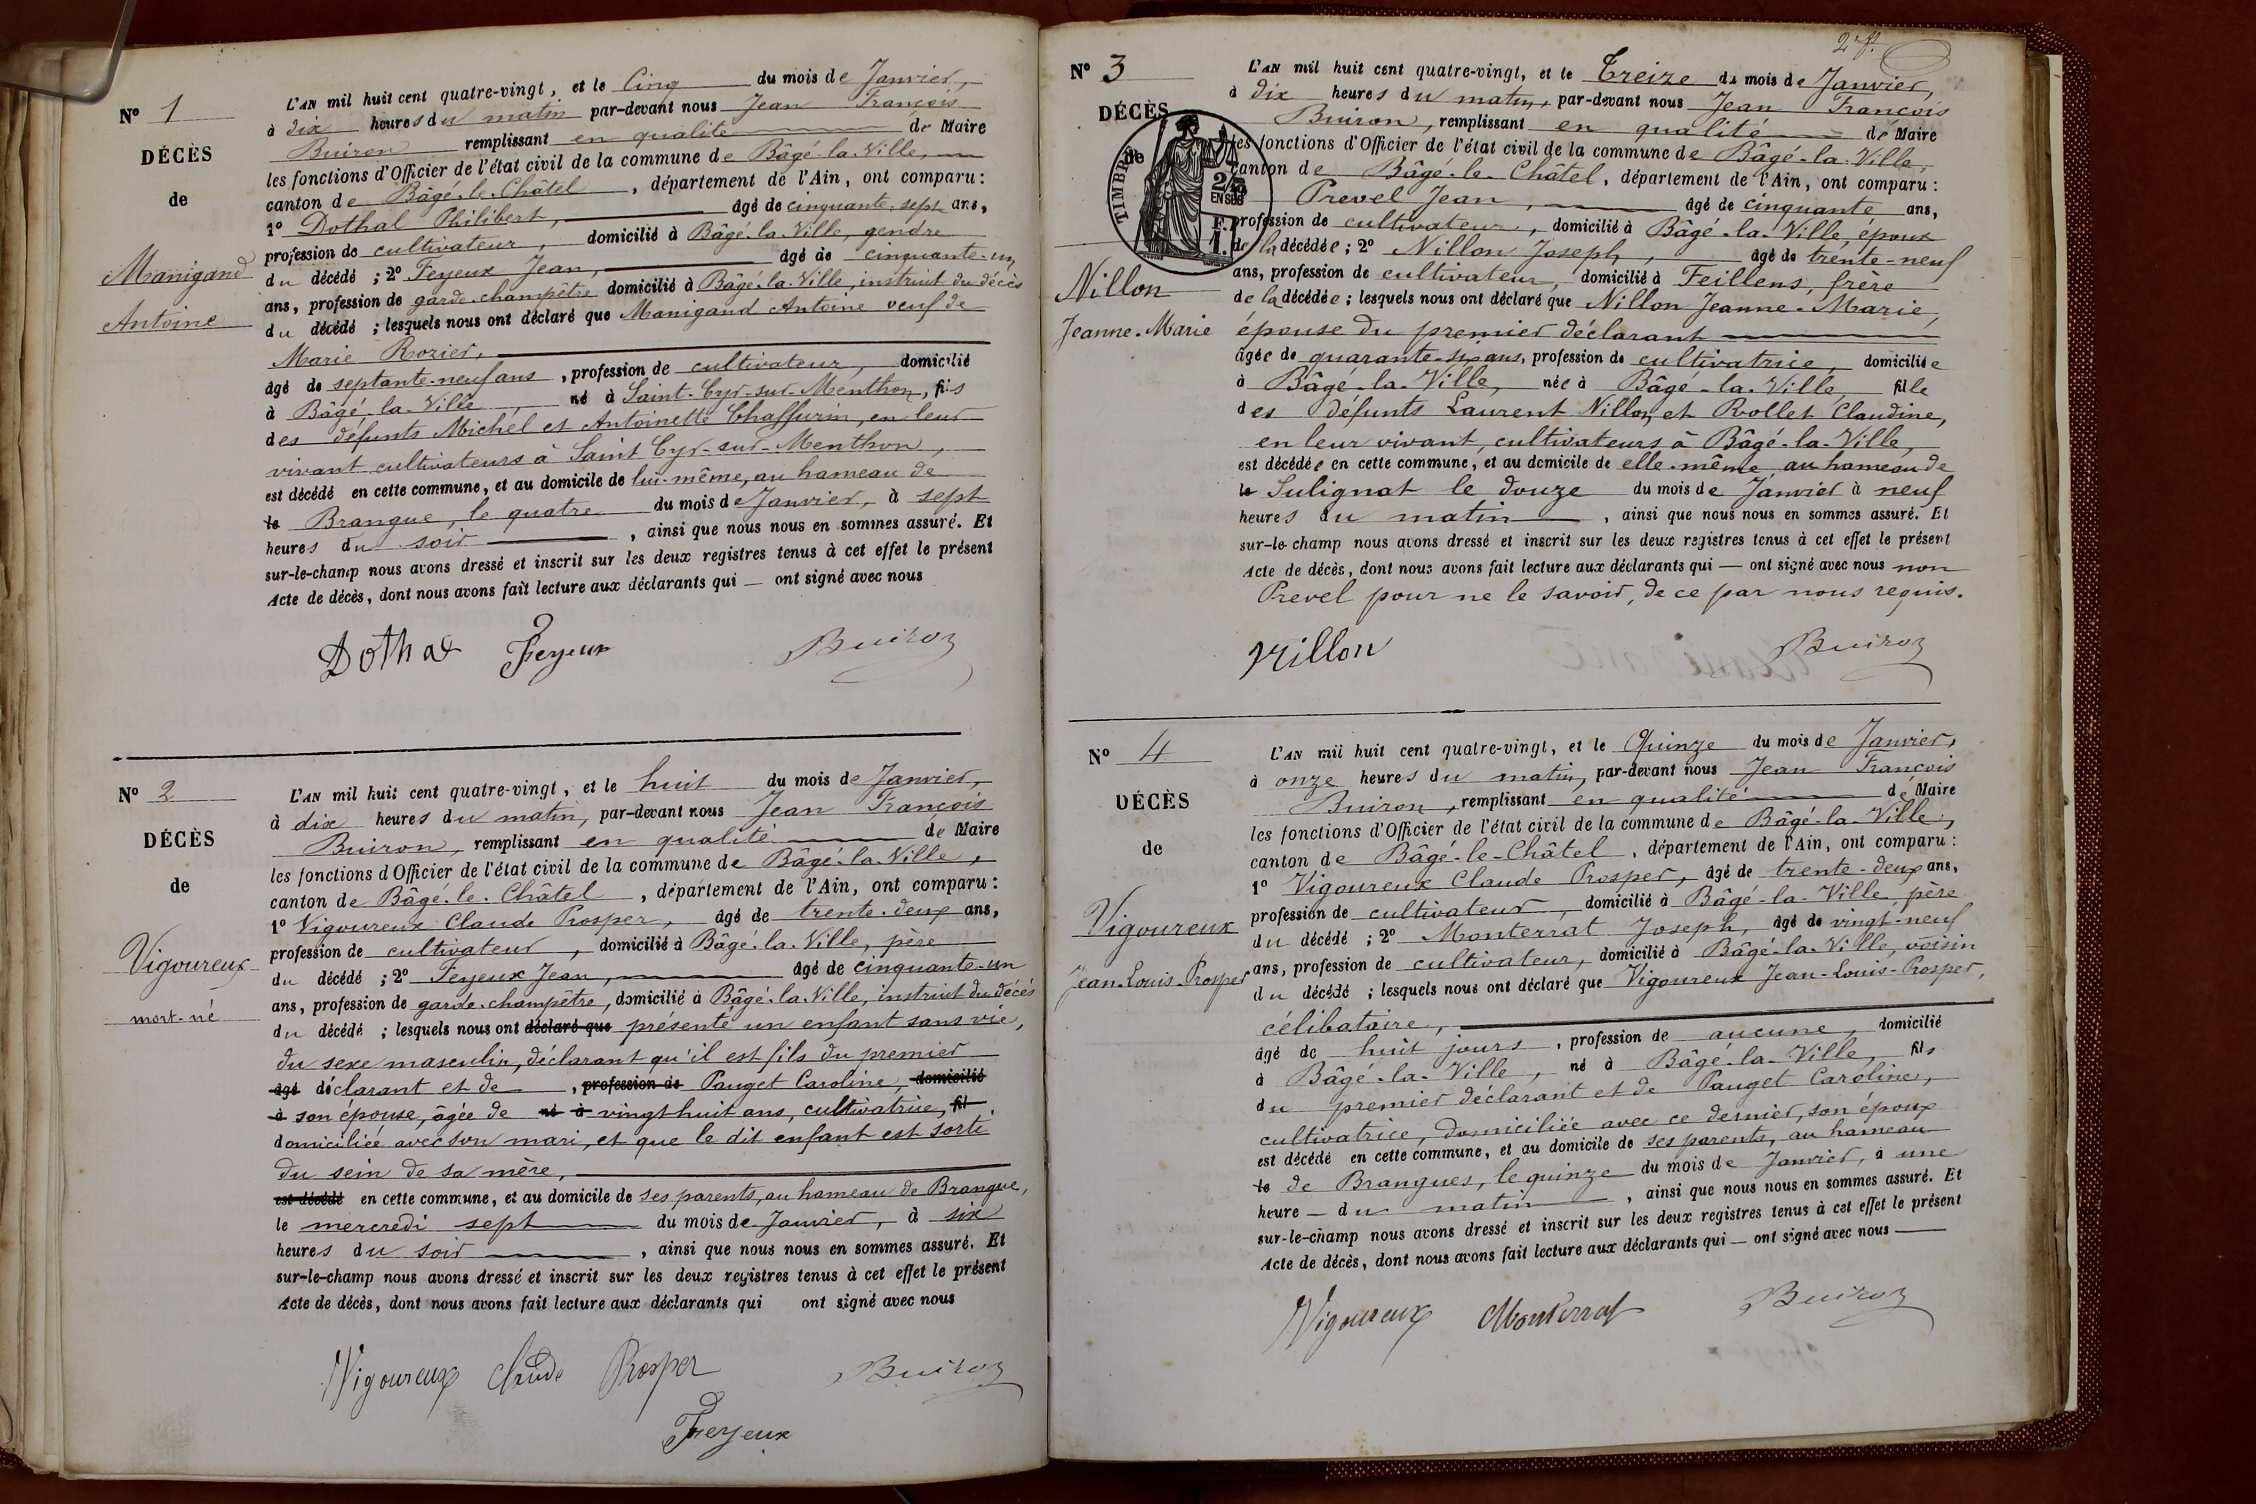 N° 1
DÉCÈS
de
Manigand
Antoine
L'AN mil huit cent quatre-vingt, et le Cinq du mois de Janvier,
à dix heures du matin par-devant nous Jean François
Buiron remplissant en qualité de Maire
les fonctions d'Officier de l'état civil de la commune de Bâgé-la-Ville,
canton de Bâgé-le-Châtel, département de l'Ain, ont comparu :
1° Dothal Philibert, âgé de cinquante-sept ans,
profession de cultivateur, domicilié à Bâgé-la-Ville, gendre
du décédé ; 2° Feyeux Jean, âgé de cinquante-un
ans, profession de garde-champêtre domicilié à Bâgé-la-Ville, instruit du décès
du décédé ; lesquels nous ont déclaré que Manigand Antoine veuf de
Marie Rozier,
âgé de septante-neuf ans, profession de cultivateur, domicilié
à Bâgé-la-Ville né à Saint-Cyr-sur-Menthon, fils
des défunts Michel et Antoinette Chaffurin, en leur
vivant cultivateurs à Saint Cyr-sur-Menthon,
est décédé en cette commune, et au domicile de lui-même, au hameau de
le Brangue, le quatre du mois de Janvier, à sept
heures du soir, ainsi que nous nous en sommes assuré. Et
sur-le-champ nous avons dressé et inscrit sur les deux registres tenus à cet effet le présent
Acte de décès, dont nous avons fait lecture aux déclarants qui — ont signé avec nous
Dothal Feyeux Buiron
N° 2
DÉCÈS
de
Vigoureux
mort-né
L'AN mil huit cent quatre-vingt, et le huit du mois de Janvier,
à dix heures du matin, par-devant nous Jean François
Buiron, remplissant en qualité de Maire
les fonctions d'Officier de l'état civil de la commune de Bâgé-la-Ville,
canton de Bâgé-le-Châtel, département de l'Ain, ont comparu :
1° Vigoureux Claude Prosper, âgé de trente-deux ans,
profession de cultivateur, domicilié à Bâgé-la-Ville, père
du décédé ; 2° Feyeux Jean, âgé de cinquante-un
ans, profession de garde-champêtre, domicilié à Bâgé-la-Ville, instruit du décès
du décédé ; lesquels nous ont déclaré que présenté un enfant sans vie,
du sexe masculin, déclarant qu'il est fils du premier
âgé déclarant et de, profession de Pauget Caroline, domicilié
à son épouse, âgée de né à vingt huit ans, cultivatrice, fil
domiciliée avec son mari, et que le dit enfant est sorti
du sein de sa mère,
est décédé en cette commune, et au domicile de ses parents, au hameau de Brangue,
le mercredi sept du mois de Janvier, à six
heures du soir, ainsi que nous nous en sommes assuré. Et
sur-le-champ nous avons dressé et inscrit sur les deux registres tenus à cet effet le présent
Acte de décès, dont nous avons fait lecture aux déclarants qui ont signé avec nous
Vigoureux Claude Prosper Buiron
Feyeux
2 f.
N° 3
DÉCÈS
de
TIMBRE
2/10
EN SUS
F.
1.
Nillon
Jeanne-Marie
L'AN mil huit cent quatre-vingt, et le Treize du mois de Janvier,
à dix heures du matin, par-devant nous Jean François
Buiron, remplissant en qualité de Maire
les fonctions d'Officier de l'état civil de la commune de Bâgé-la-Ville,
canton de Bâgé-le-Châtel, département de l'Ain, ont comparu :
Prevel Jean, âgé de cinquante ans,
profession de cultivateur, domicilié à Bâgé-la-Ville, époux
de la décédée ; 2° Nillon Joseph, âgé de trente-neuf
ans, profession de cultivateur, domicilié à Feillens, frère
de la décédée ; lesquels nous ont déclaré que Nillon Jeanne-Marie,
épouse du premier déclarant
âgée de quarante-six ans, profession de cultivatrice, domiciliée
à Bâgé-la-Ville, née à Bâgé-la-Ville, fille
des défunts Laurent Nillon, et Rollet Claudine,
en leur vivant, cultivateurs à Bâgé-la-Ville,
est décédée en cette commune, et au domicile de elle-même, au hameau de
le Sulignat le douze du mois de Janvier à neuf
heures du matin, ainsi que nous nous en sommes assuré. Et
sur-le-champ nous avons dressé et inscrit sur les deux registres tenus à cet effet le présent
Acte de décès, dont nous avons fait lecture aux déclarants qui — ont signé avec nous non
Prevel pour ne le savoir, de ce par nous requis.
Nillon Buiron
N° 4
DÉCÈS
de
Vigoureux
Jean-Louis-Prosper
L'AN mil huit cent quatre-vingt, et le Quinze du mois de Janvier,
à onze heures du matin, par-devant nous Jean François
Buiron, remplissant en qualité de Maire
les fonctions d'Officier de l'état civil de la commune de Bâgé-la-Ville,
canton de Bâgé-le-Châtel, département de l'Ain, ont comparu :
1° Vigoureux Claude Prosper, âgé de trente-deux ans,
profession de cultivateur, domicilié à Bâgé-la-Ville, père
du décédé ; 2° Monterrat Joseph, âgé de vingt-neuf
ans, profession de cultivateur, domicilié à Bâgé-la-Ville, voisin
du décédé ; lesquels nous ont déclaré que Vigoureux Jean-Louis-Prosper,
célibataire,
âgé de huit jours, profession de aucune, domicilié
à Bâgé-la-Ville, né à Bâgé-la-Ville, fils
du premier déclarant et de Pauget Caroline,
cultivatrice, domiciliée avec ce dernier, son époux
est décédé en cette commune, et au domicile de ses parents, au hameau
le de Brangues, le quinze du mois de Janvier, à une
heure — du matin, ainsi que nous nous en sommes assuré. Et
sur-le-champ nous avons dressé et inscrit sur les deux registres tenus à cet effet le présent
Acte de décès, dont nous avons fait lecture aux déclarants qui — ont signé avec nous —
Vigoureux Monterrat Buiron